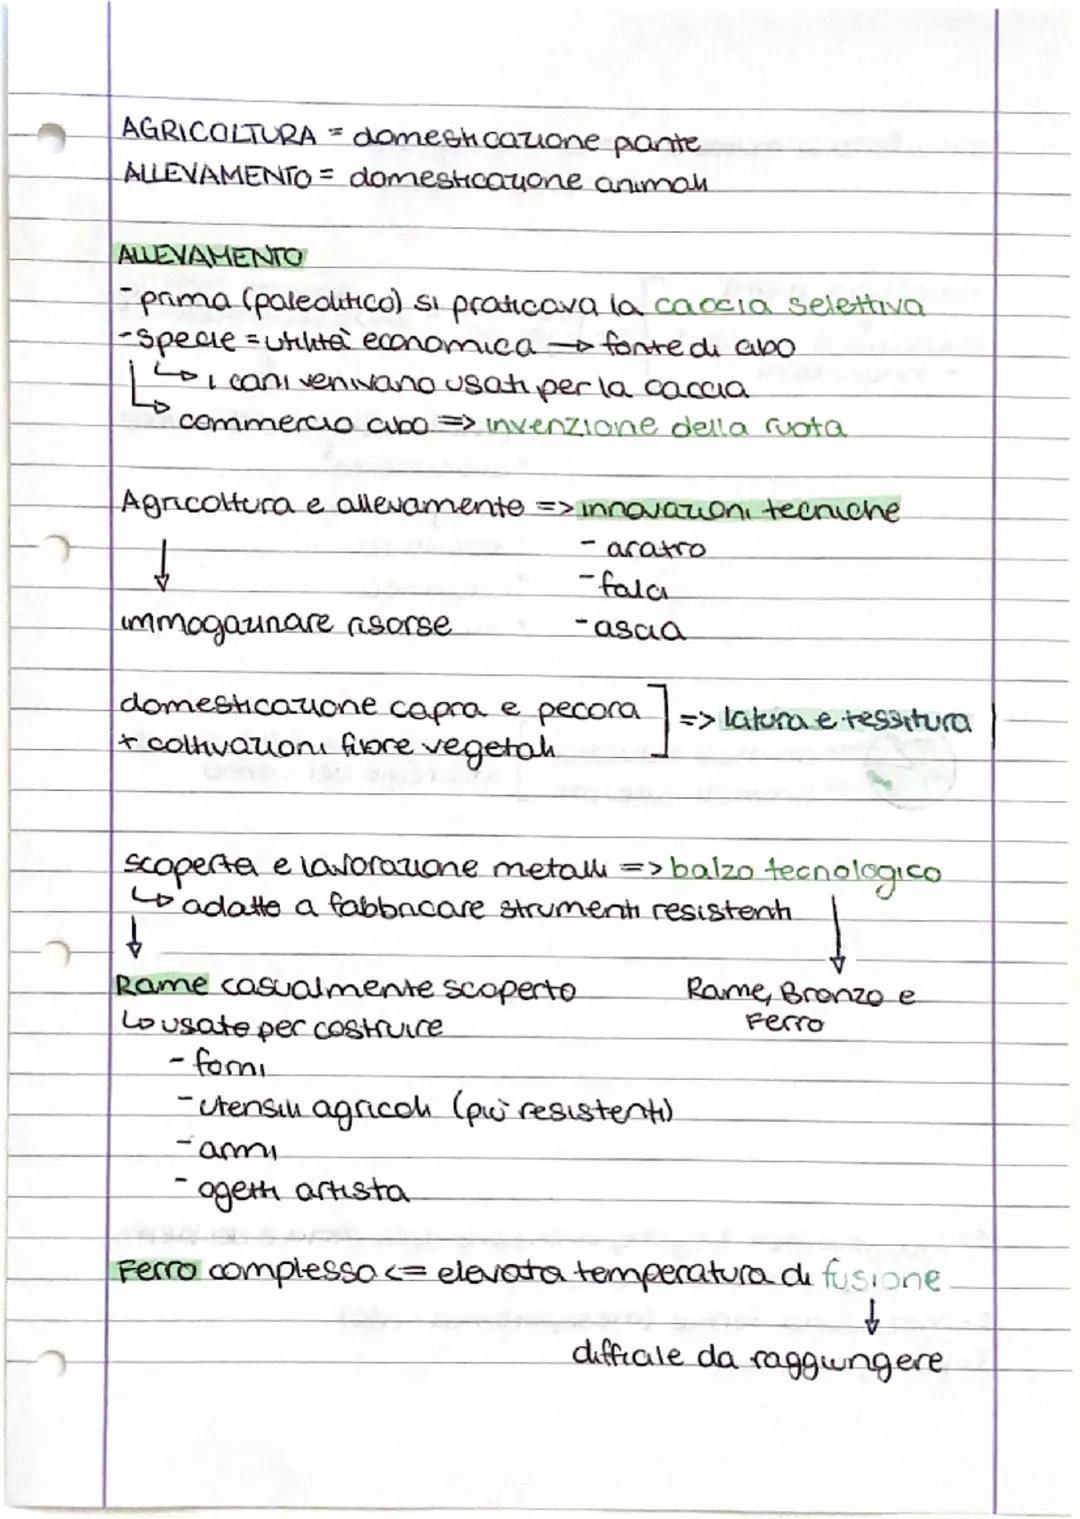 AGRICOLTURA = domesticazione piante
ALLEVAMENTO = domesticazione animali
ALLEVAMENTO
- prima (paleolitico) si praticava la caccia selettiva
- specie = utilità economica → fonte di cibo
↳ i cani venivano usati per la caccia
↳ commercio cibo => invenzione della ruota
Agricoltura e allevamento => innovazioni tecniche
- aratro
↓ - falci
immagazzinare risorse - ascia
domesticazione capra e pecora ] => filatura e tessitura
+ coltivazioni fibre vegetali
scoperta e lavorazione metalli => balzo tecnologico
↳ adatte a fabbricare strumenti resistenti
↓ ↓
Rame casualmente scoperto Rame, Bronzo e
↳ usato per costruire Ferro
- forni
- utensili agricoli (più resistenti)
- armi
- ogetti artista
Ferro complesso <= elevata temperatura di fusione
↓
difficile da raggiungere